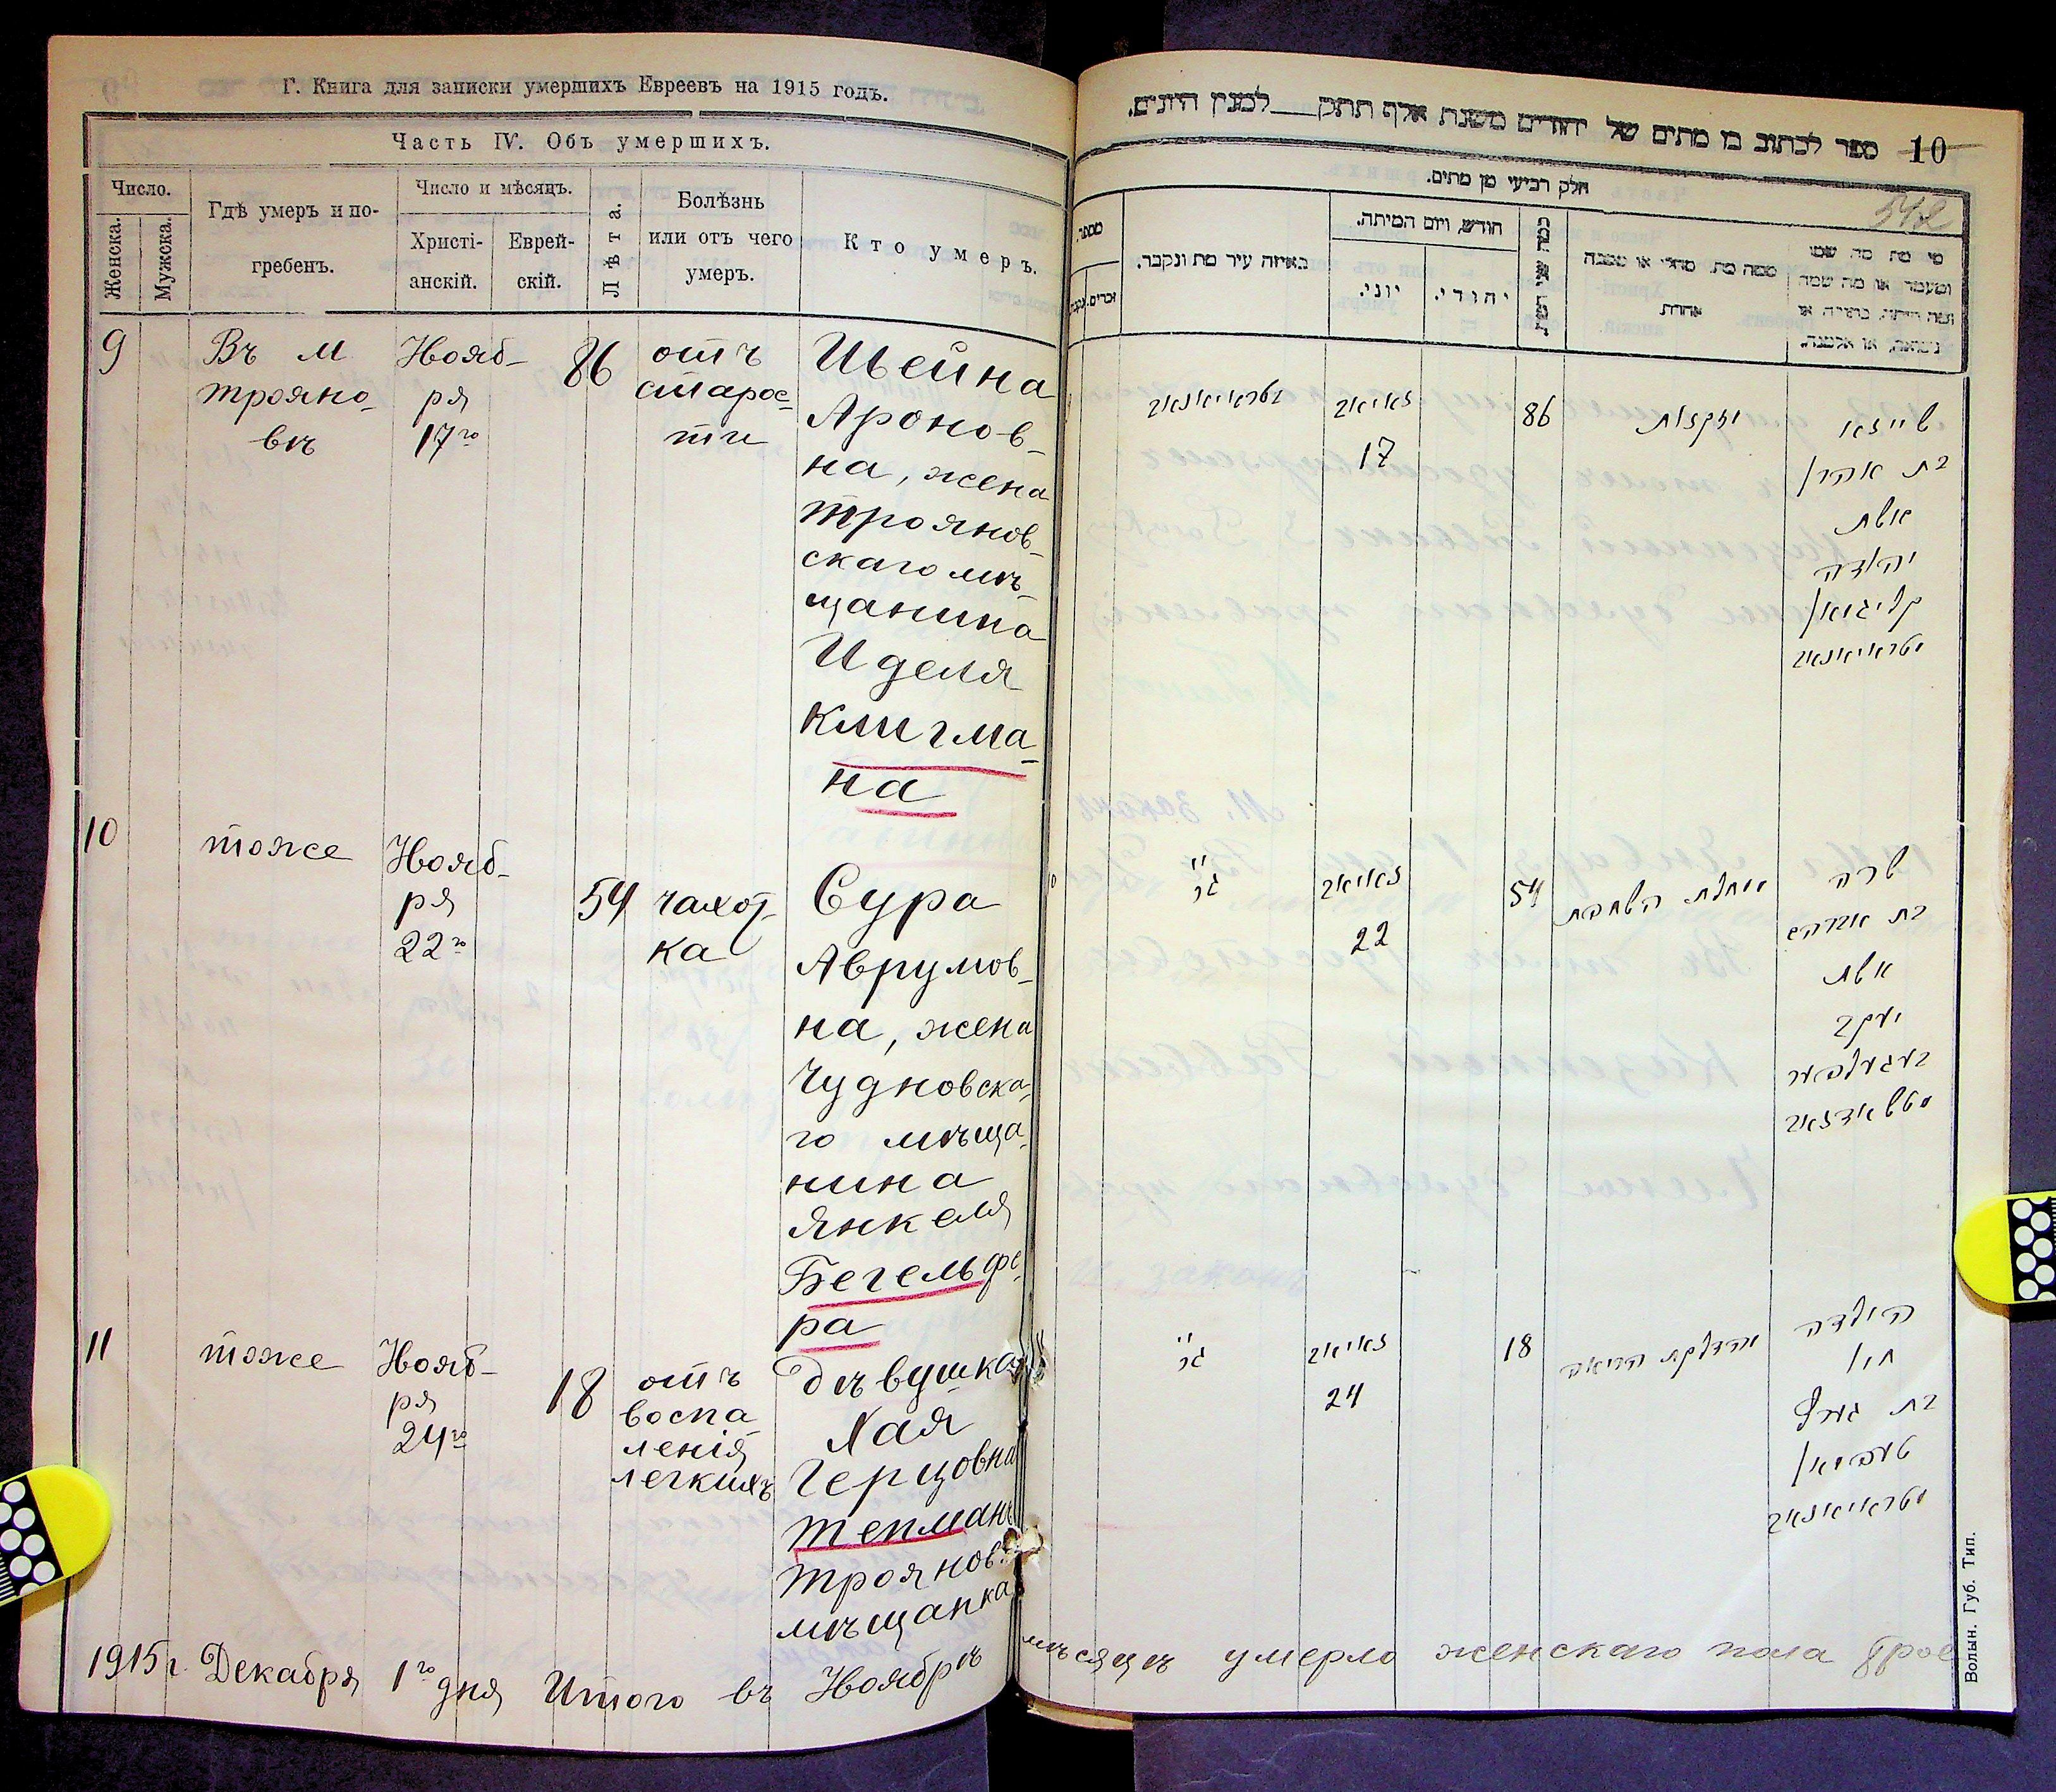 Г. Книга для записки умершихъ Евреевъ на 1915 годъ.
Часть IV. Объ умершихъ.
Число.
Женска.
Мужска.
Гдѣ умеръ и по-
гребенъ.
Число и мѣсяцъ.
Христі-
анскій.
Еврей-
скій.
Лѣта.
Болѣзнь
или отъ чего
умеръ.
Кто умеръ.
9
Въ м
трояно-
вѣ
Нояб-
ря
17го
86
отъ
старос-
ти
Шейна
Аронов-
на, жена
троянов-
скаго мѣ-
щанина
Иделя
Клигма-
на
10
тоже
Нояб-
ря
22го
54
чахот-
ка
Сура
Аврумов-
на, жена
Чудновска-
го мѣща-
нина
Янкеля
Бегельфе-
ра
11
тоже
Нояб-
ря
24го
18
отъ
воспа
ленія
легкихъ
дѣвушка
Хая
Герцовна
Тепманъ
троянов.
мѣщанка
1915 г. Декабря 1го дня Итого въ Ноябрѣ мѣсяцѣ умерло женскаго пола трое
ספר לכתוב בו מתים של יהודים משנת אלף תתק___למנין היונים.
10
542
חלק רביעי מן מתים.
מספר.
זכרים.
באיזה עיר מת ונקבר.
חודש, ויום המיתה.
יוני.
יהודי.
כמה שני חייו.
ממה מת. מחלי או מסבה
אחרת
מי מת מה שמו
ומעמדו או מה שמה
ומה היתה, בתולה או
נשואה, או אלמנה.
טראיאנאוו
17
86
מזקנות
שיינא
בת אהרן
אשת
יהודה
קליגמאן
מטראיאנאוו
10
22
54
שרה
בת אברהם
אשת
יעקב
24
18
מדלקת הריאה
הילדה
בת
מטראיאנאוו
Волын. Губ. Тип.